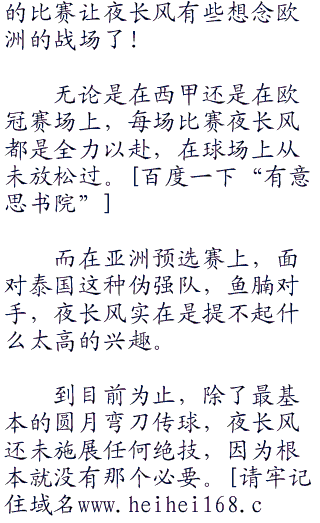 的比赛让夜长风有些想念欧
洲的战场了!
无论是在西甲还是在欧
冠赛场上，每场比赛夜长风
都是全力以赴，在球场上从
未放松过。[百度一下“有意
思书院”]
而在亚洲预选赛上，面
对泰国这种伪强队，鱼腩对
手，夜长风实在是提不起什
么太高的兴趣。
到目前为止，除了最基
本的圆月弯刀传球，夜长风
还未施展任何绝技，因为根
本就没有那个必要。[请牢记
住域名www.heihei168.c